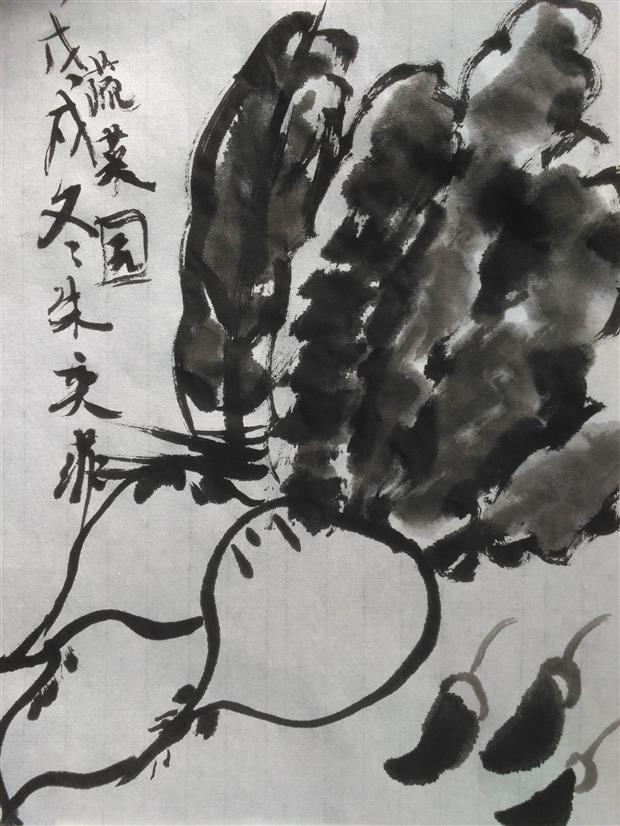 蔬菜园
戊戌冬朱奕